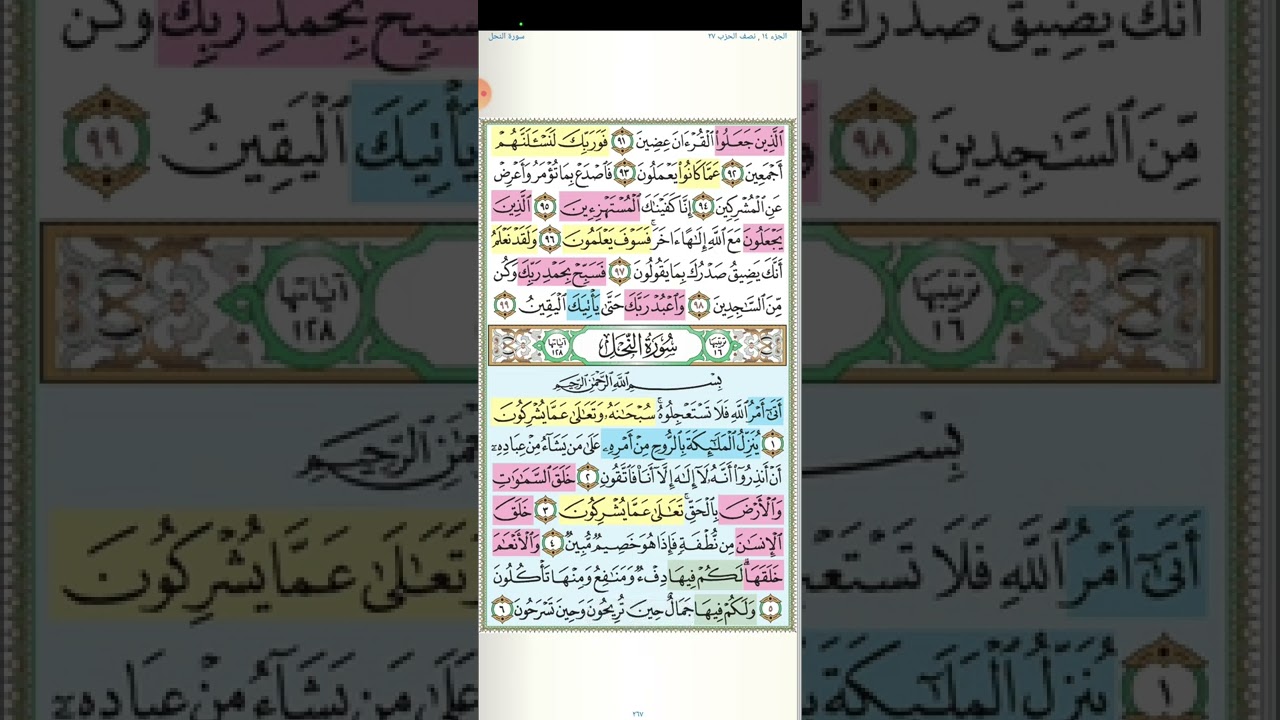 سورة النحل
الجزء ١٤ , نصف الحزب ٢٧
ٱلَّذِينَ جَعَلُوا۟ ٱلْقُرْءَانَ عِضِينَ ٩١ فَوَرَبِّكَ لَنَسْـَٔلَنَّهُمْ
أَجْمَعِينَ ٩٢ عَمَّا كَانُوا۟ يَعْمَلُونَ ٩٣ فَٱصْدَعْ بِمَا تُؤْمَرُ وَأَعْرِضْ
عَنِ ٱلْمُشْرِكِينَ ٩٤ إِنَّا كَفَيْنَٰكَ ٱلْمُسْتَهْزِءِينَ ٩٥ ٱلَّذِينَ
يَجْعَلُونَ مَعَ ٱللَّهِ إِلَٰهًا ءَاخَرَ ۚ فَسَوْفَ يَعْلَمُونَ ٩٦ وَلَقَدْ نَعْلَمُ
أَنَّكَ يَضِيقُ صَدْرُكَ بِمَا يَقُولُونَ ٩٧ فَسَبِّحْ بِحَمْدِ رَبِّكَ وَكُن
مِّنَ ٱلسَّٰجِدِينَ ٩٨ وَٱعْبُدْ رَبَّكَ حَتَّىٰ يَأْتِيَكَ ٱلْيَقِينُ ٩٩
ترتيبها ١٦ سُورَةُ النَّحْلِ آياتها ١٢٨
بِسْمِ ٱللَّهِ ٱلرَّحْمَٰنِ ٱلرَّحِيمِ
أَتَىٰٓ أَمْرُ ٱللَّهِ فَلَا تَسْتَعْجِلُوهُ ۚ سُبْحَٰنَهُۥ وَتَعَٰلَىٰ عَمَّا يُشْرِكُونَ
١ يُنَزِّلُ ٱلْمَلَٰٓئِكَةَ بِٱلرُّوحِ مِنْ أَمْرِهِۦ عَلَىٰ مَن يَشَآءُ مِنْ عِبَادِهِۦٓ
أَنْ أَنذِرُوٓا۟ أَنَّهُۥ لَآ إِلَٰهَ إِلَّآ أَنَا۠ فَٱتَّقُونِ ٢ خَلَقَ ٱلسَّمَٰوَٰتِ
وَٱلْأَرْضَ بِٱلْحَقِّ ۚ تَعَٰلَىٰ عَمَّا يُشْرِكُونَ ٣ خَلَقَ
ٱلْإِنسَٰنَ مِن نُّطْفَةٍ فَإِذَا هُوَ خَصِيمٌ مُّبِينٌ ٤ وَٱلْأَنْعَٰمَ
خَلَقَهَا ۗ لَكُمْ فِيهَا دِفْءٌ وَمَنَٰفِعُ وَمِنْهَا تَأْكُلُونَ
٥ وَلَكُمْ فِيهَا جَمَالٌ حِينَ تُرِيحُونَ وَحِينَ تَسْرَحُونَ ٦
٢٦٧